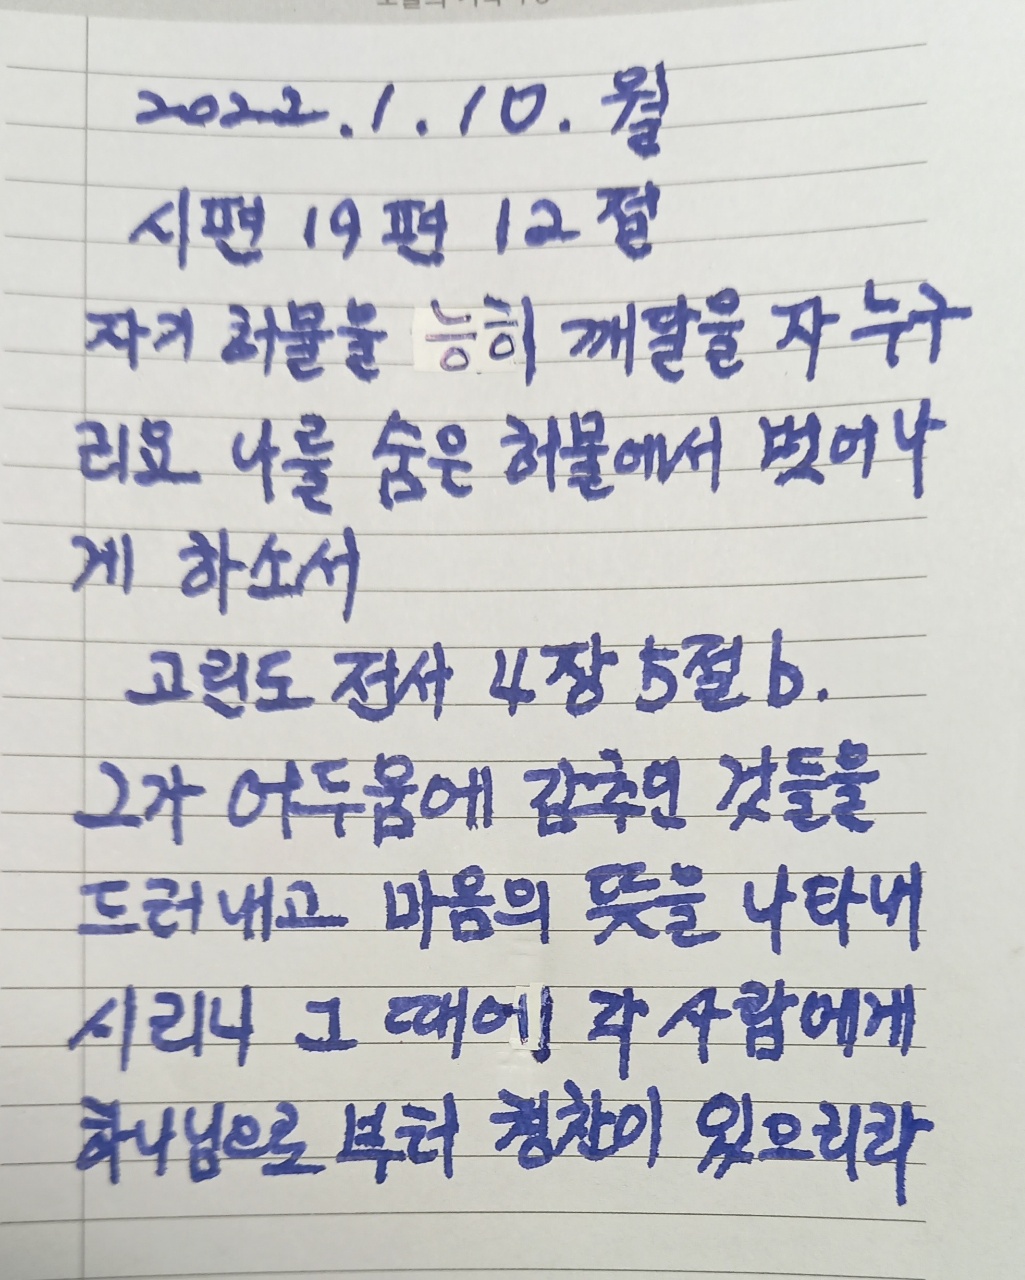 2022.1.10.월
시편 19편 12절
자기 허물을 능히 깨달을 자 누구
리요 나를 숨은 허물에서 벗어나
게 하소서
고린도 전서 4장 5절 b.
그가 어두움에 감추인 것들을
드러내고 마음의 뜻을 나타내
시리니 그 때에 각 사람에게
하나님으로 부터 칭찬이 있으리라